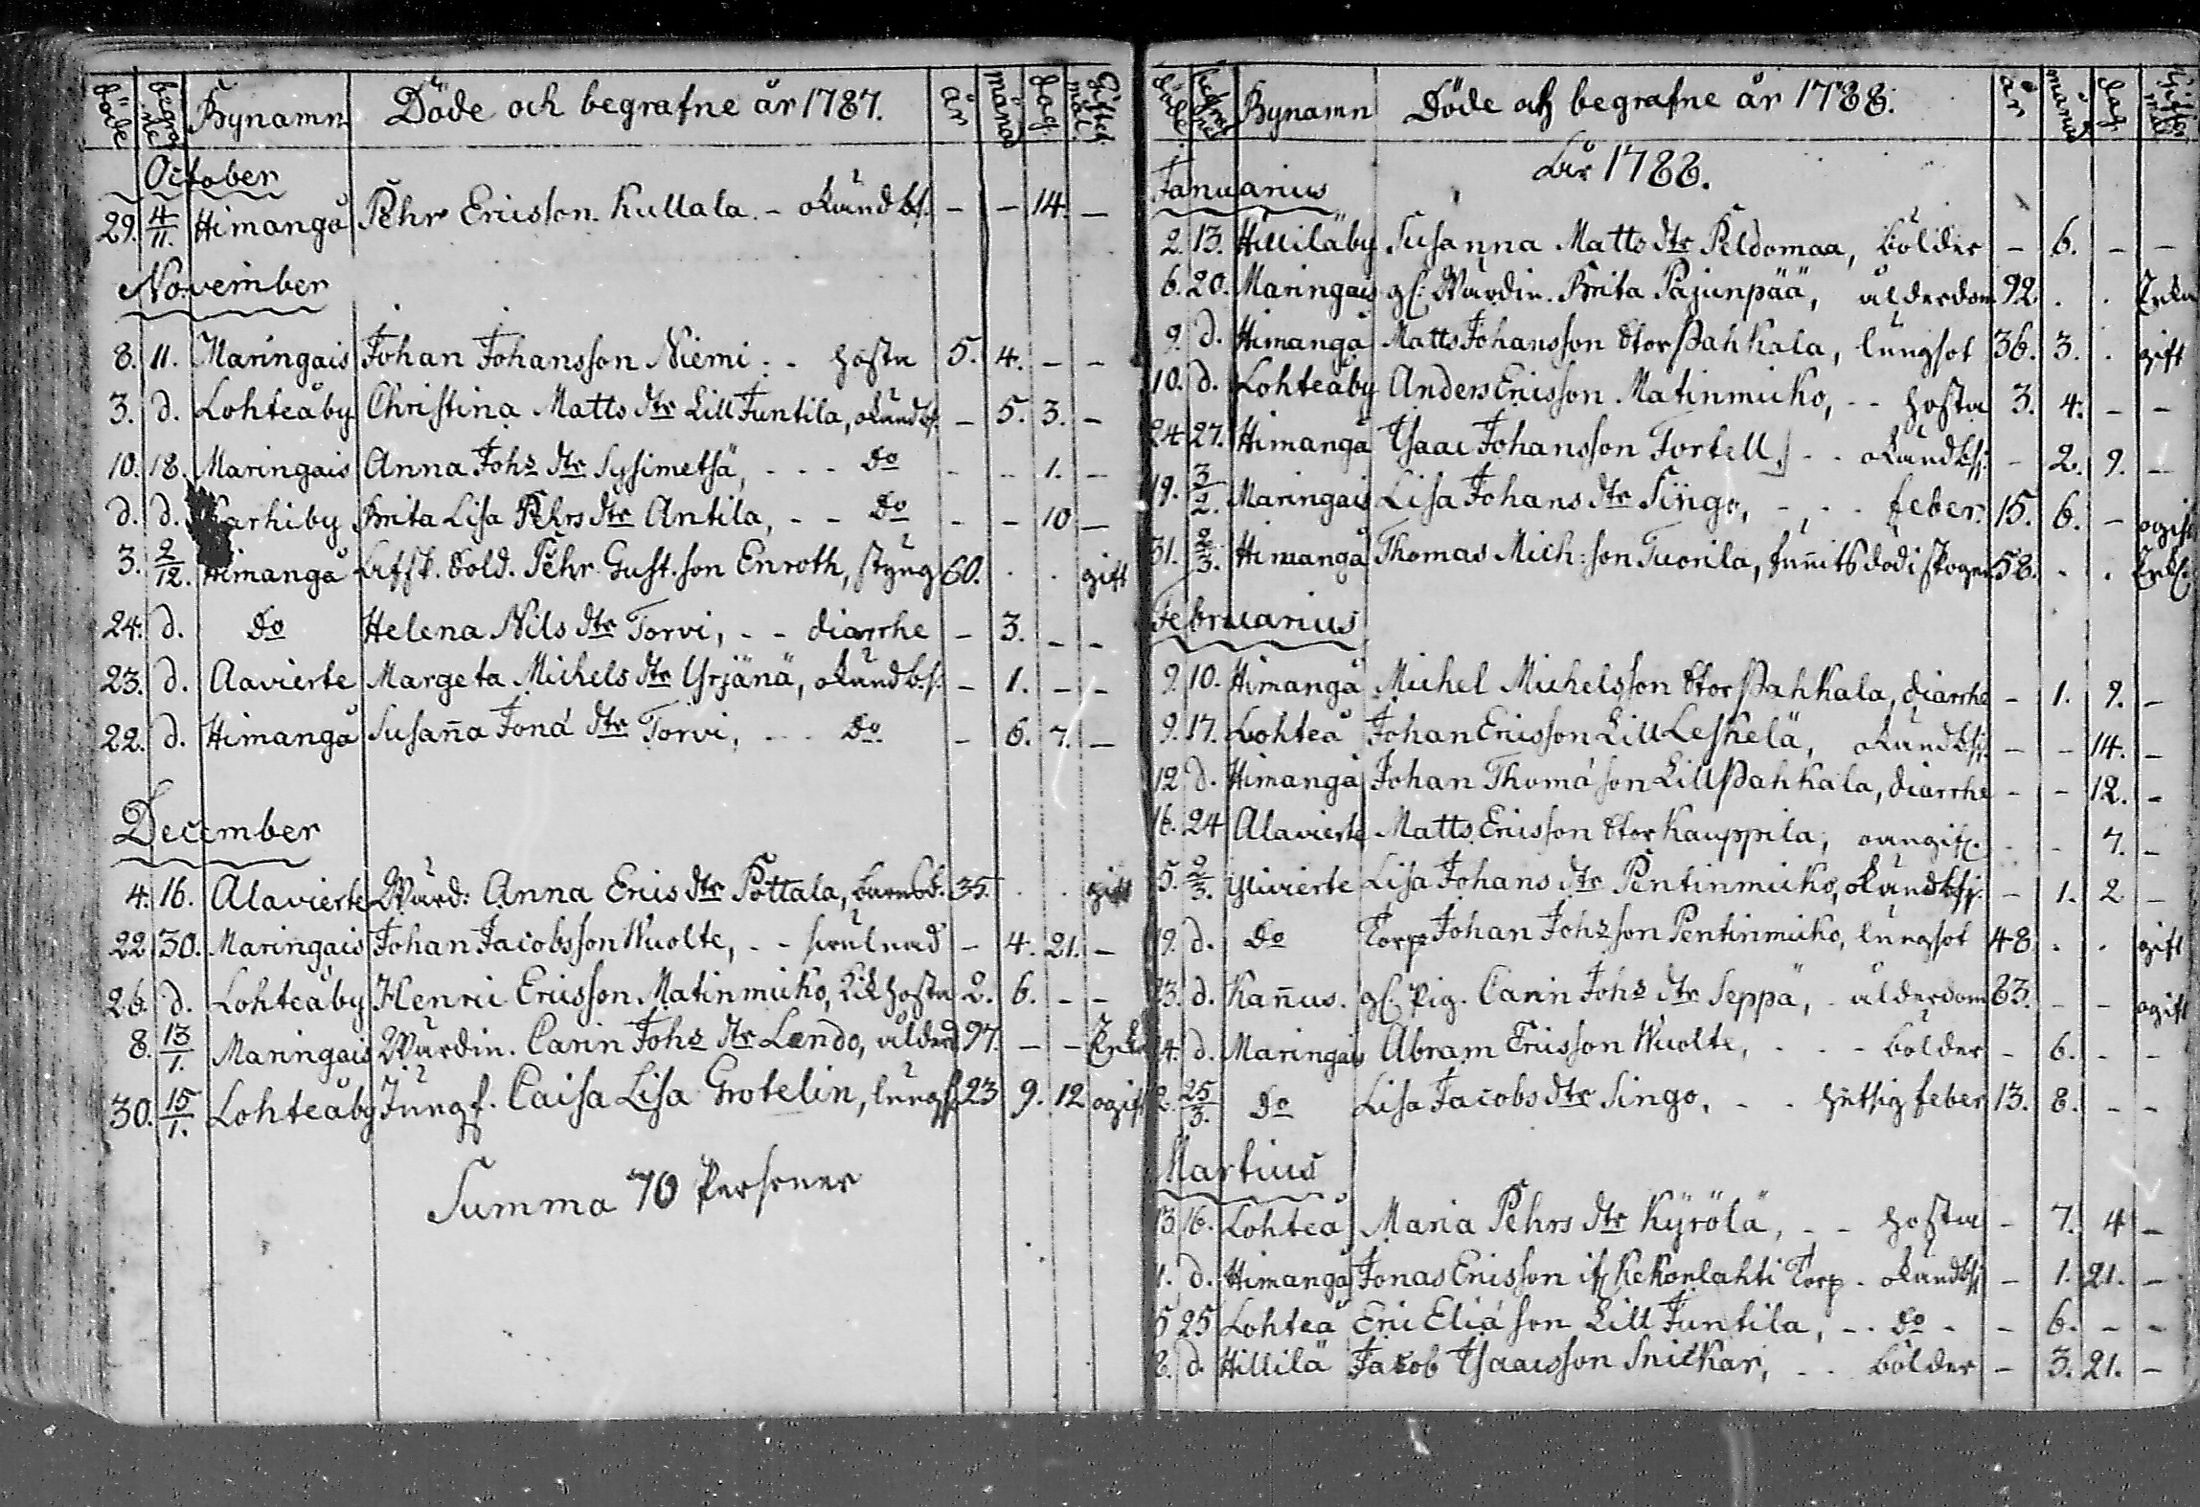 döde | begrafne | Bynamn | Döde och begrafne år 1787. | år | månad | dag. | Giftermål.
October
29. 4/11. Himangå Pehr Ericsson Kullala. - okändbs. - - 14. -
November
8. 11. Maringais Johan Johansson Niemi. - hosta 5. 4. - -
3. d. Lohteåby Christina Matts dtr Lill Juntila, okändbs. - 5. 3. -
10. 18. Maringais Anna Johs dtr Sysimetsä, - - - Do - - 1. -
d. d. Karhiby Brita Lisa Pehrs dtr Antila, - - Do - - 10 -
3. 2/12. Himangå Afsk. Sold. Pehr Gust.son Enroth, styng 60. . . gift
24. d. Do Helena Nils dtr Torvi, - - diarrhe - 3. - -
23. d. Aavierte Margeta Michels dtr Yrjänä, okändbs. - 1. - -
22. d. Himangå Susaña Jona dtr Torvi, - - Do - 6. 7. -
December
4. 16. Alavierte Wärd: Anna Erics dtr Pottala, barnbd. 35. . . gift
22 30. Maringais Johan Jacobsson Wuolte, - - svulnad - 4. 21. -
26. d. Lohteåby Henric Ericsson Matinmicko, Kikhosta 2. 6. - -
8. 13/1. Maringais Wärdin. Carin Johs dtr Lendo, ålderd 97. - - Enka
30. 15/1. Lohteåby Jungf. Caisa Lisa Grotelin, lungs. 23 9. 12 ogift
Summa 70 Personer
Bynamn | Döde och begrafne år 1788. | år | månad | dag. | Giftermål
År 1788.
Januarius
2. 13. Hillilåby Susanna Matts dtr Peldomaa, bölder - 6. - -
6. 20. Maringais gl: Wärdin. Brita Pajunpää, ålderdom 92. . . Enka
9. d. Himangå Matts Johansson Stor Pahkala, lungsot 36. 3. . gift
10. d. Lohteåby Anders Ericsson Matinmicko, - - hosta 3. 4. - -
24 27. Himangå Isaac Johansson Tortell, - - okändbs: - 2. 9. -
19. 3/2. Maringais Lisa Johans dtr Singo, - - - feber. 15. 6. - ogift
31. 2/3. Himangå Thomas Mich:son Tuorila, funits död i skogen 58. . . Enkl.
Februarius
9. 10. Himangå Michel Michelsson Stor Pahkala, diarrhe - 1. 9. -
9. 17. Lohteå Johan Ericsson Lill Leskelä, okändbs: - - 14. -
12 d. Himangå Johan Thomason Lill Pahkala, diarrhe - - 12. -
16. 24 Alavierte Matts Ericsson Stor Kauppila, oangif. . - 7. -
5. 2/3. Ylivierte Lisa Johans dtr Pentinmicko, okändbs. - 1. 2 -
19. d. Do Torp Johan Johsson Pentinmicko, lungsot 48. . . gift
23. d. Kañus. gl. Pig. Carin Johs dtr Seppä, - ålderdom 63. - - ogift
24. d. Maringais Abram Ericsson Wuolte, - - - bölder - 6. - -
2. 25/3. Do Lisa Jacobs dtr Singo, - - hitsig feber 13. 8. - -
Martius
13 16. Lohteå Maria Pehrs dtr Kyrölä, - - hosta - 7. 4 -
1. d. Himangå Jonas Ericsson Kekonlahti Torp - okändbs - 1. 21. -
5 25 Lohteå Eric Eliason Lill Juntila, - - Do - - 6. - -
8. d. Hillilä Jacob Isaacsson Snickar, - - bölder - 3. 21. -